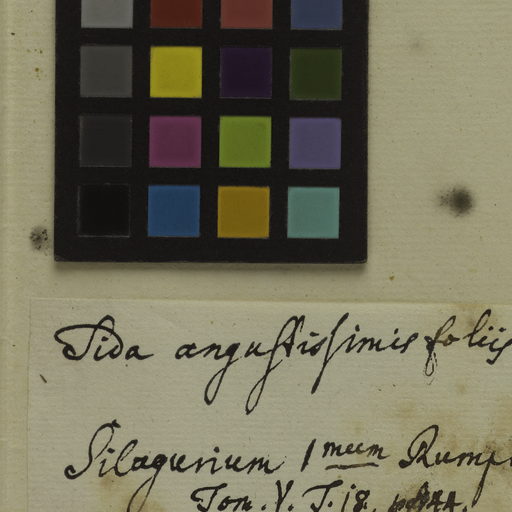 Sida angustissimis foliis
Silagurium 1 mum Rump
Tom. V. T. 18.